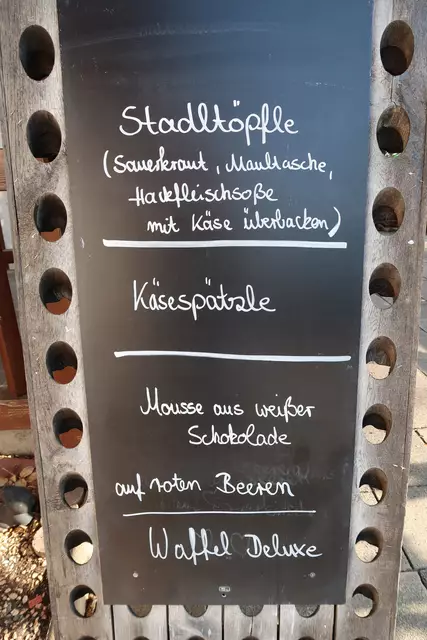 Stadltöpfle
(Sauerkraut, Maultasche,
Hackfleischsoße
mit Käse überbacken)
Käsespätzle
Mousse aus weißer
Schokolade
auf roten Beeren
Waffel Deluxe